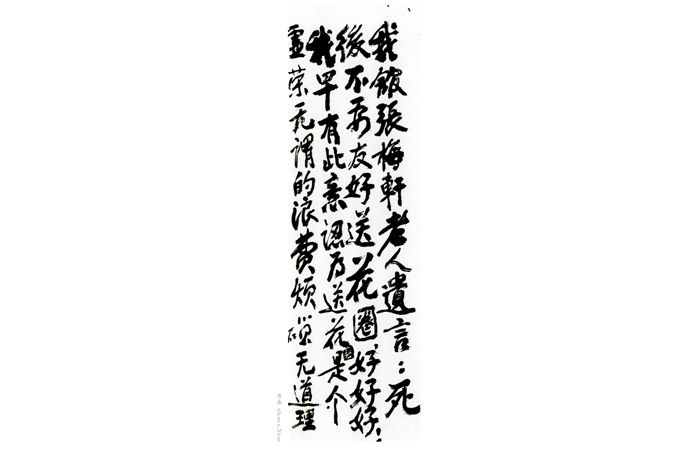 我館張梅軒老人遺言：死
後不要友好送花圈，好好好！
我早有此意認为送花圈是个
虛荣无謂的浪费烦琐无道理